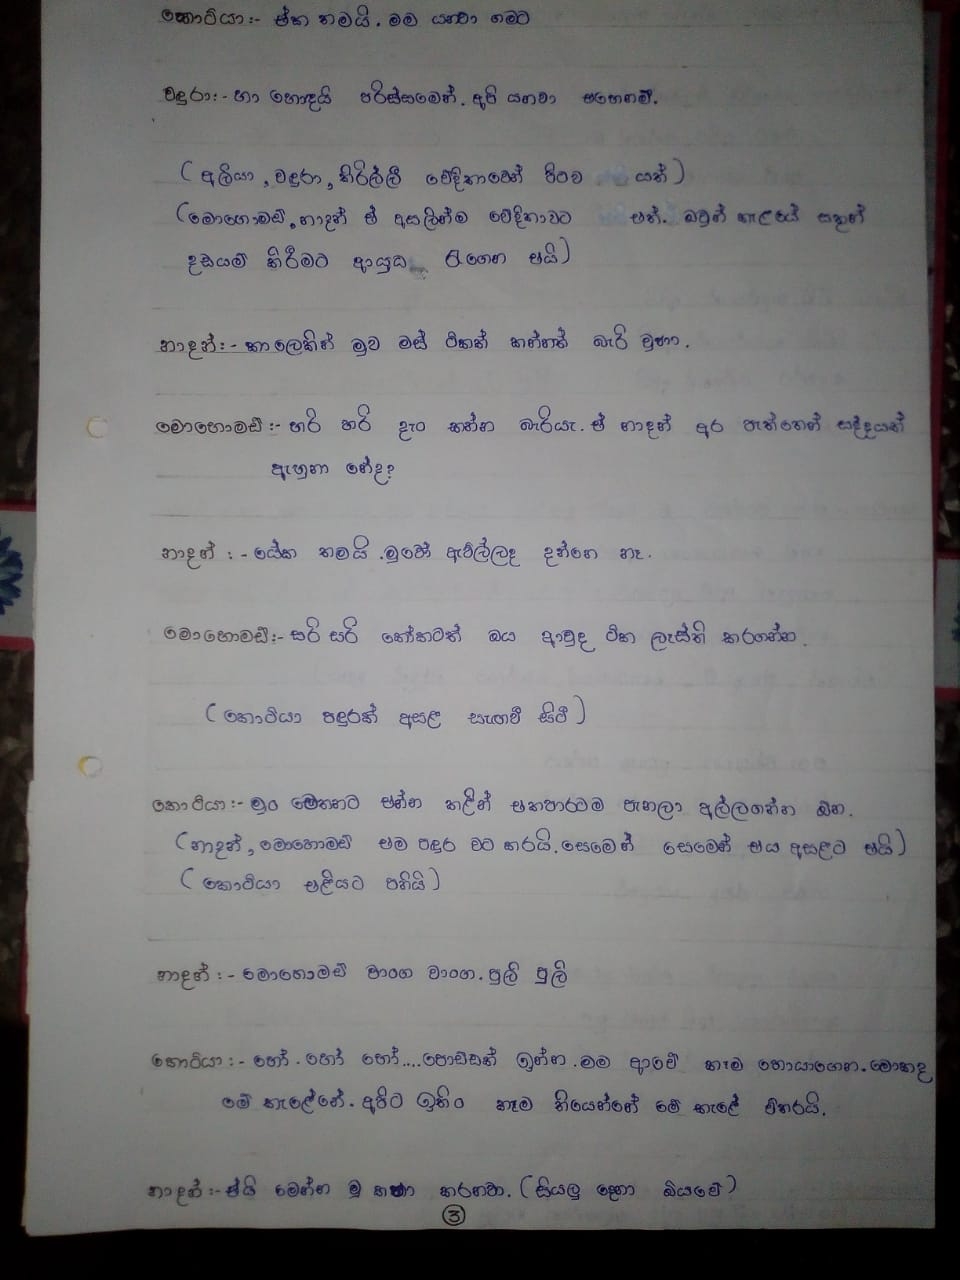 කොටියා:- ඒක තමයි. මම යනවා ගමට
වඳුරා:- හා හොඳයි පරිස්සමෙන්. අපි යනවා එහෙනම්.
(අලියා, වඳුරා, කිරිල්ලී වේදිකාවෙන් පිටව යත්)
(මොහොමඩ්, නාදන් ඒ අසලින්ම වේදිකාවට එත්. ඔවුන් කැළයේ සතුන්
දඩයම් කිරීමට ආයුධ රැගෙන එයි)
නාදන්:- කාලෙකින් මුව මස් ටිකක් කන්නත් බැරි වුණා.
මොහොමඩ්:- හරි හරි දැං කන්න බැරියැ. ඒ නාදන් අර පැත්තෙන් සද්දයක්
ඇහුනා නේද?
නාදන් :- යේක තමයි. මුවෝ ඇවිල්ලද දන්නෙ නෑ.
මොහොමඩ්:- සරි සරි කෝකටත් ඔය ආවුද ටික ලෑස්ති කරගන්න.
(කොටියා පඳුරක් අසළ සැඟවී සිටී)
කොටියා:- මුං මෙතනට එන්න කළින් එකපාරටම පැනලා අල්ලගන්න ඕන.
(නාදන්, මොහොමඩ් එම පඳුර වට කරයි. සෙමෙන් සෙමෙන් එය අසළට එයි)
(කොටියා එළියට පනියි)
නාදන්:- මොහොමඩ් වාංග වාංග. පුලි පුලි
කොටියා:- හෝ. හෝ හෝ.... පොඩ්ඩක් ඉන්න. මම ආවේ කෑම හොයාගෙන. මොකද
මේ කැළේනේ. අපිට ඉතිං කෑම තියෙන්නේ මේ කැළේ විතරයි.
නාදන්:- ඒයි මෙන්න මූ කතා කරනවා. (සියලු දෙනා බියවේ)
3